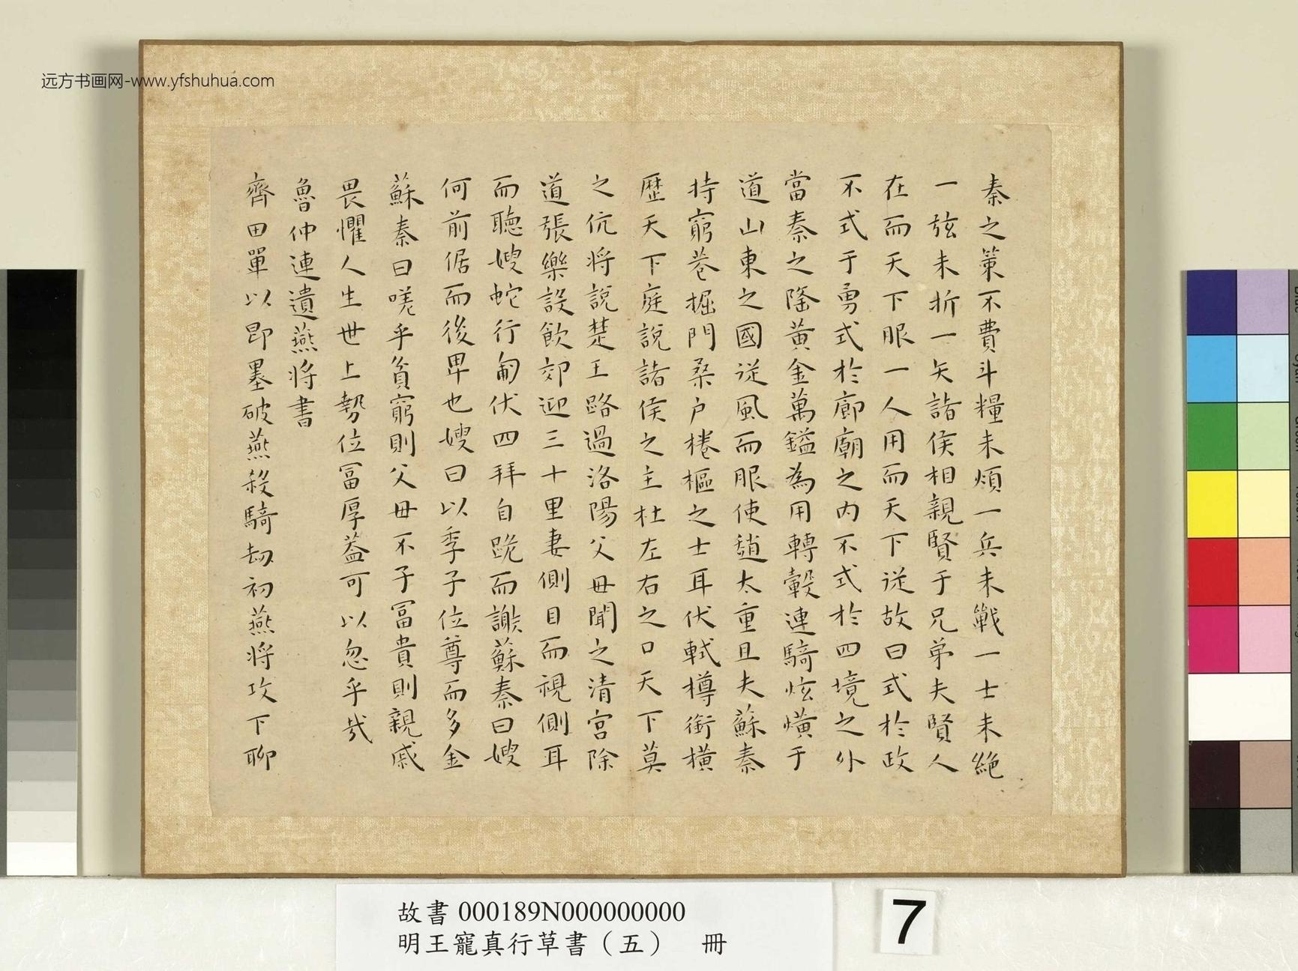 远方书画网-www.yfshuhua.com
秦之策不費斗糧未煩一兵未戰一士未絕
一弦未折一矢諸侯相親賢于兄弟夫賢人
在而天下服一人用而天下従故曰式於政
不式于勇式於廊廟之內不式於四境之外
當秦之隆黃金萬鎰為用轉轂連騎炫熿于
道山東之國従風而服使趙太重且夫蘇秦
特窮巷掘門桑户棬樞之士耳伏軾樽銜橫
歷天下庭說諸侯之主杜左右之口天下莫
之伉将說楚王路過洛陽父母聞之清宮除
道張樂設飲郊迎三十里妻側目而視側耳
而聽嫂蛇行匍伏四拜自跪而謝蘇秦曰嫂
何前倨而後卑也嫂曰以季子位尊而多金
蘇秦曰嗟乎貧窮則父母不子冨貴則親戚
畏懼人生世上勢位冨厚蓋可以忽乎哉
魯仲連遺燕将書
齊田單以即墨破燕殺騎劫初燕将攻下聊
故書 000189N000000000
明王寵真行草書（五） 冊
7